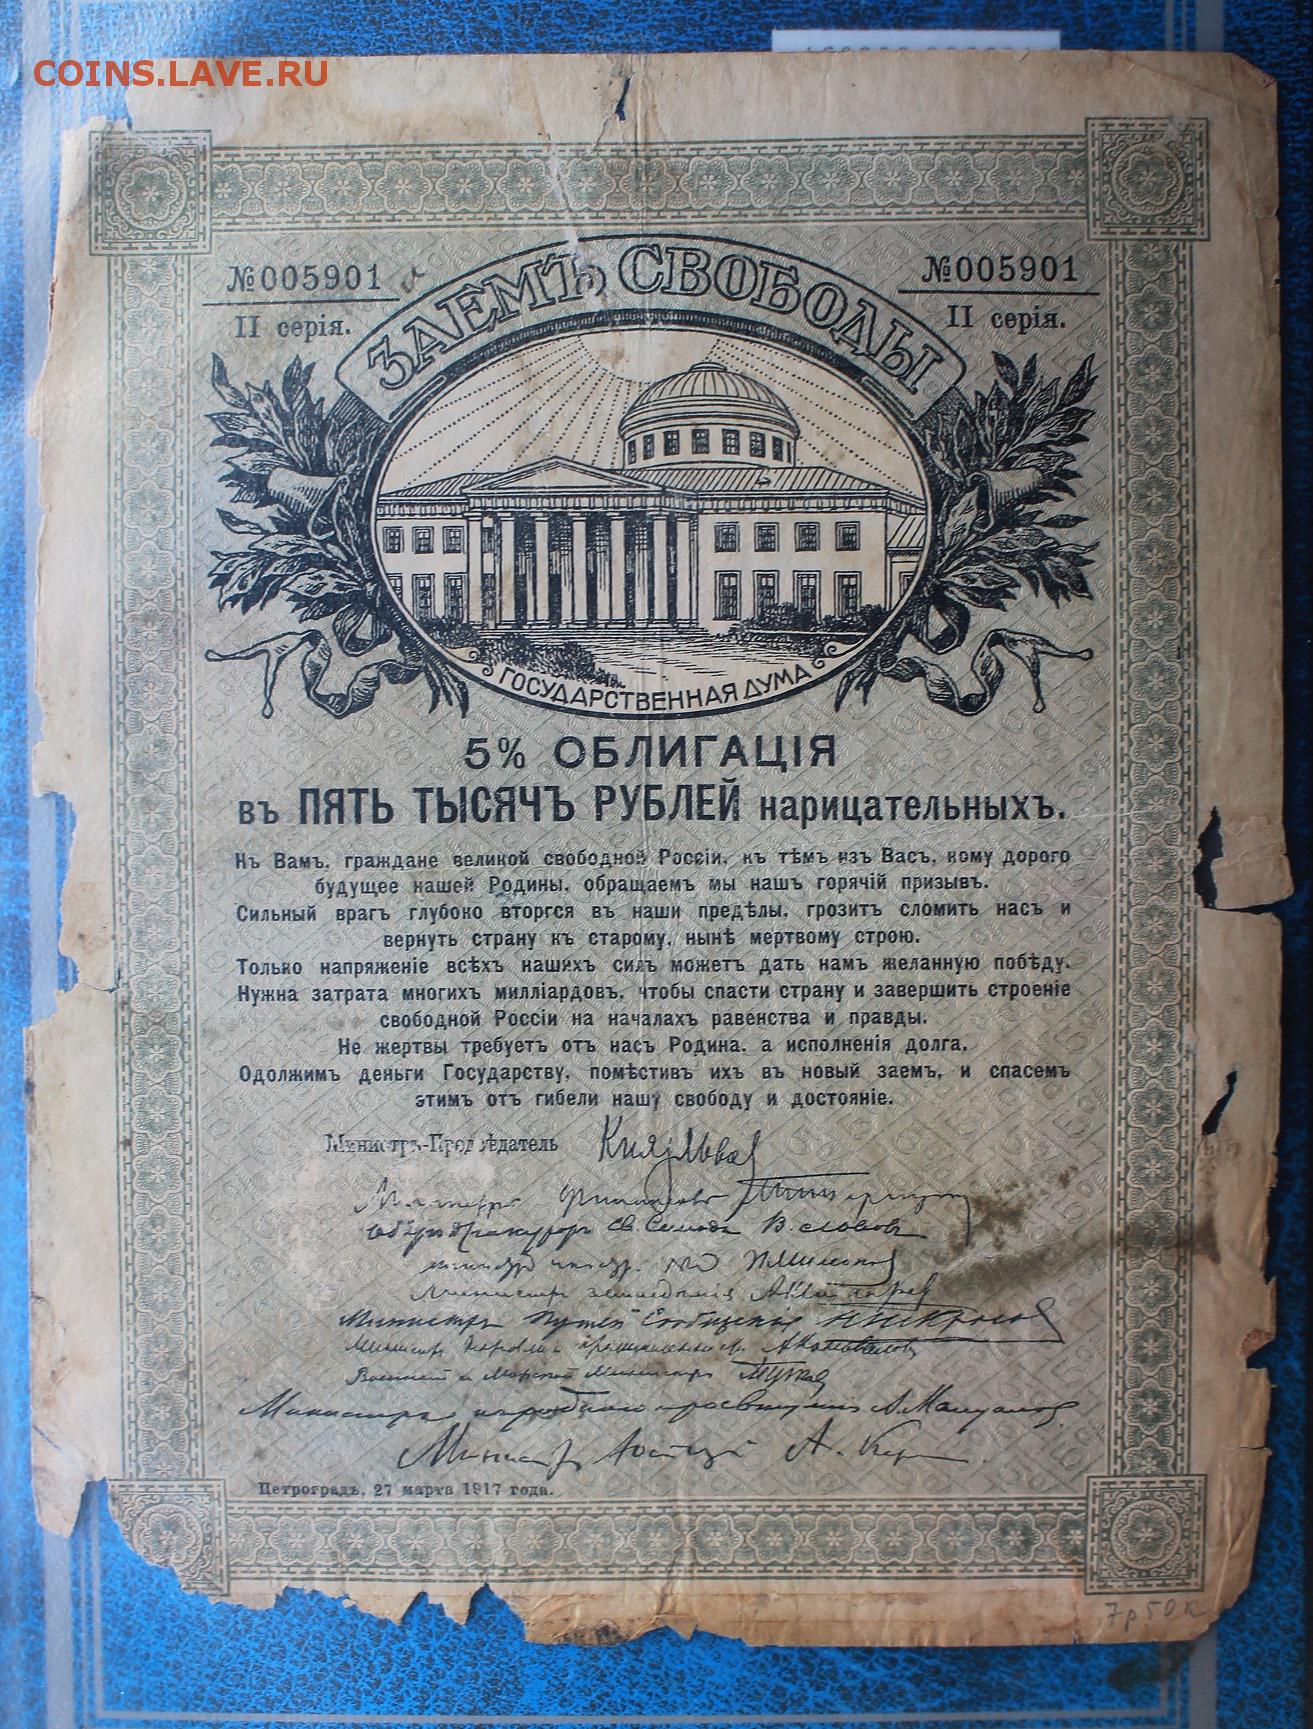 COINS.LAVE.RU
№005901 №005901
II серія. II серія.
ЗАЕМЪ СВОБОДЫ
ГОСУДАРСТВЕННАЯ ДУМА
5% ОБЛИГАЦІЯ
въ ПЯТЬ ТЫСЯЧЪ РУБЛЕЙ нарицательныхъ.
Къ Вамъ, граждане великой свободной Россіи, къ тѣмъ изъ Васъ, кому дорого
будущее нашей Родины, обращаемъ мы нашъ горячій призывъ.
Сильный врагъ глубоко вторгся въ наши предѣлы, грозитъ сломить насъ и
вернуть страну къ старому, нынѣ мертвому строю.
Только напряженіе всѣхъ нашихъ силъ можетъ дать намъ желанную побѣду.
Нужна затрата многихъ милліардовъ, чтобы спасти страну и завершить строеніе
свободной Россіи на началахъ равенства и правды.
Не жертвы требуетъ отъ насъ Родина, а исполненія долга.
Одолжимъ деньги Государству, помѣстивъ ихъ въ новый заемъ, и спасемъ
этимъ отъ гибели нашу свободу и достояніе.
Министръ-Предсѣдатель Князь Львов
Министръ Финансовъ
Оберъ Прокуроръ Св. Синода В. Львовъ
Министръ
Министръ земледѣлія
Министръ Путей Сообщенія
Министръ Торговли и промышленности А Коноваловъ
Военный и Морской Министръ
Министръ народнаго просвѣщенія А. Мануйловъ.
Министръ Юстиціи А. Кер
Петроградъ, 27 марта 1917 года.
7р50к